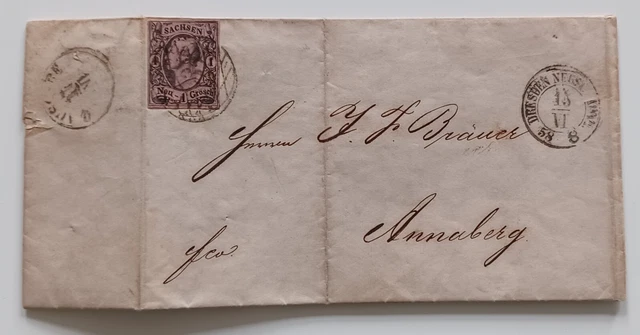 SACHSEN
1 1
Neu- 1 Grosch
DRESDEN NEUST.
13
VI
58 8
J. F. Bräuer
Annaberg.
fco.